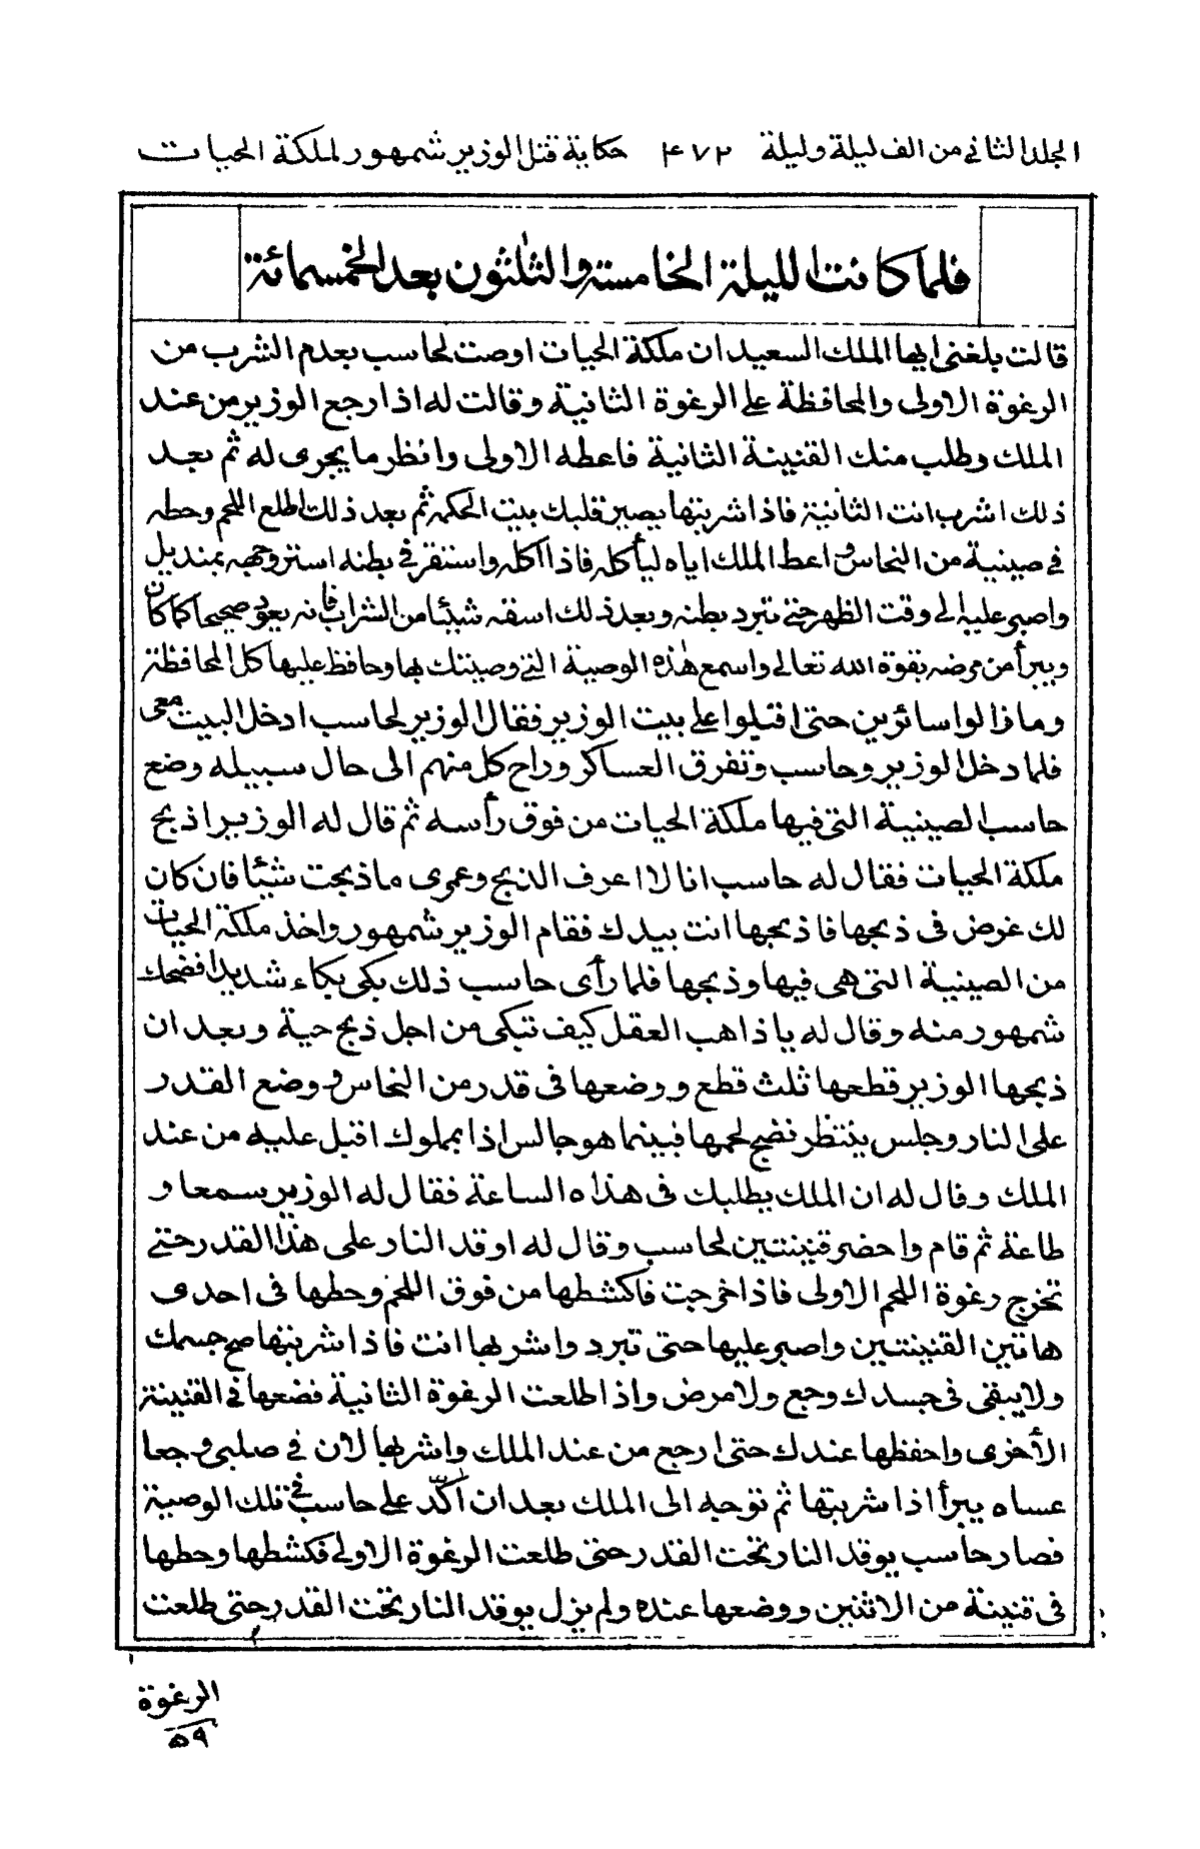 المجلد الثاني من الف ليلة وليلة ٤٧٢ حكاية قتل الوزير شمهور لملكة الحيات
فلما كانت الليلة الخامسة والثلثون بعد الخمسمائة
قالت بلغني ايها الملك السعيد ان ملكة الحيات اوصت لحاسب بعدم الشرب من
الرغوة الاولى والمحافظة على الرغوة الثانية وقالت له اذا رجع الوزير من عند
الملك وطلب منك القنينة الثانية فاعطه الاولى وانظر ما يجرى له ثم بعد
ذلك اشرب انت الثانية فاذا شربتها يصير قلبك بيت الحكمة ثم بعد ذلك اطلع اللحم وحطه
في صينية من النحاس واعط الملك اياه ليأكله فاذا اكله واستقر في بطنه استر وجهه بمنديل
واصبر عليه الى وقت الظهر حتى تبرد بطنه وبعد ذلك اسقه شيئا من الشراب فانه يعود صحيحا كما كان
ويبرأ من مرضه بقوة الله تعالى واسمع هذه الوصية التي وصيتك بها وحافظ عليها كل المحافظة
وما زالوا سائرين حتى اقبلوا على بيت الوزير فقال الوزير لحاسب ادخل البيت معى
فلما دخل الوزير وحاسب وتفرق العساكر وراح كل منهم الى حال سبيله وضع
حاسب الصينية التى فيها ملكة الحيات من فوق رأسه ثم قال له الوزير اذبح
ملكة الحيات فقال له حاسب انا لا اعرف الذبح وعمرى ما ذبحت شيئا فان كان
لك غرض فى ذبحها فاذبحها انت بيدك فقام الوزير شمهور واخذ ملكة الحيات
من الصينية التى هى فيها وذبحها فلما رأى حاسب ذلك بكى بكاء شديدا فضحك
شمهور منه وقال له يا ذاهب العقل كيف تبكى من اجل ذبح حية وبعد ان
ذبحها الوزير قطعها ثلث قطع ووضعها فى قدر من النحاس ووضع القدر
على النار وجلس ينتظر نضج لحمها فبينما هو جالس اذا بمملوك اقبل عليه من عند
الملك وقال له ان الملك يطلبك فى هذه الساعة فقال له الوزير سمعا و
طاعة ثم قام واحضر قنينتين لحاسب وقال له اوقد النار على هذا القدر حتى
تخرج رغوة اللحم الاولى فاذا خرجت فاكشطها من فوق اللحم وحطها فى احدى
هاتين القنينتين واصبر عليها حتى تبرد واشربها انت فاذا شربتها صح جسمك
ولا يبقى فى جسدك وجع ولا مرض واذا طلعت الرغوة الثانية فضعها في القنينة
الأخرى واحفظها عندك حتى ارجع من عند الملك واشربها لان في صلبى وجعا
عساه يبرأ اذا شربتها ثم توجه الى الملك بعد ان اكّد على حاسب في تلك الوصية
فصار حاسب يوقد النار تحت القدر حتى طلعت الرغوة الاولى فكشطها وحطها
فى قنينة من الاثنين ووضعها عنده ولم يزل يوقد النار تحت القدر حتى طلعت
الرغوة
٥٩